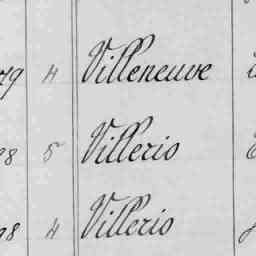 79 4 Villeneuve
98 5 Villerio
98 4 Villerio